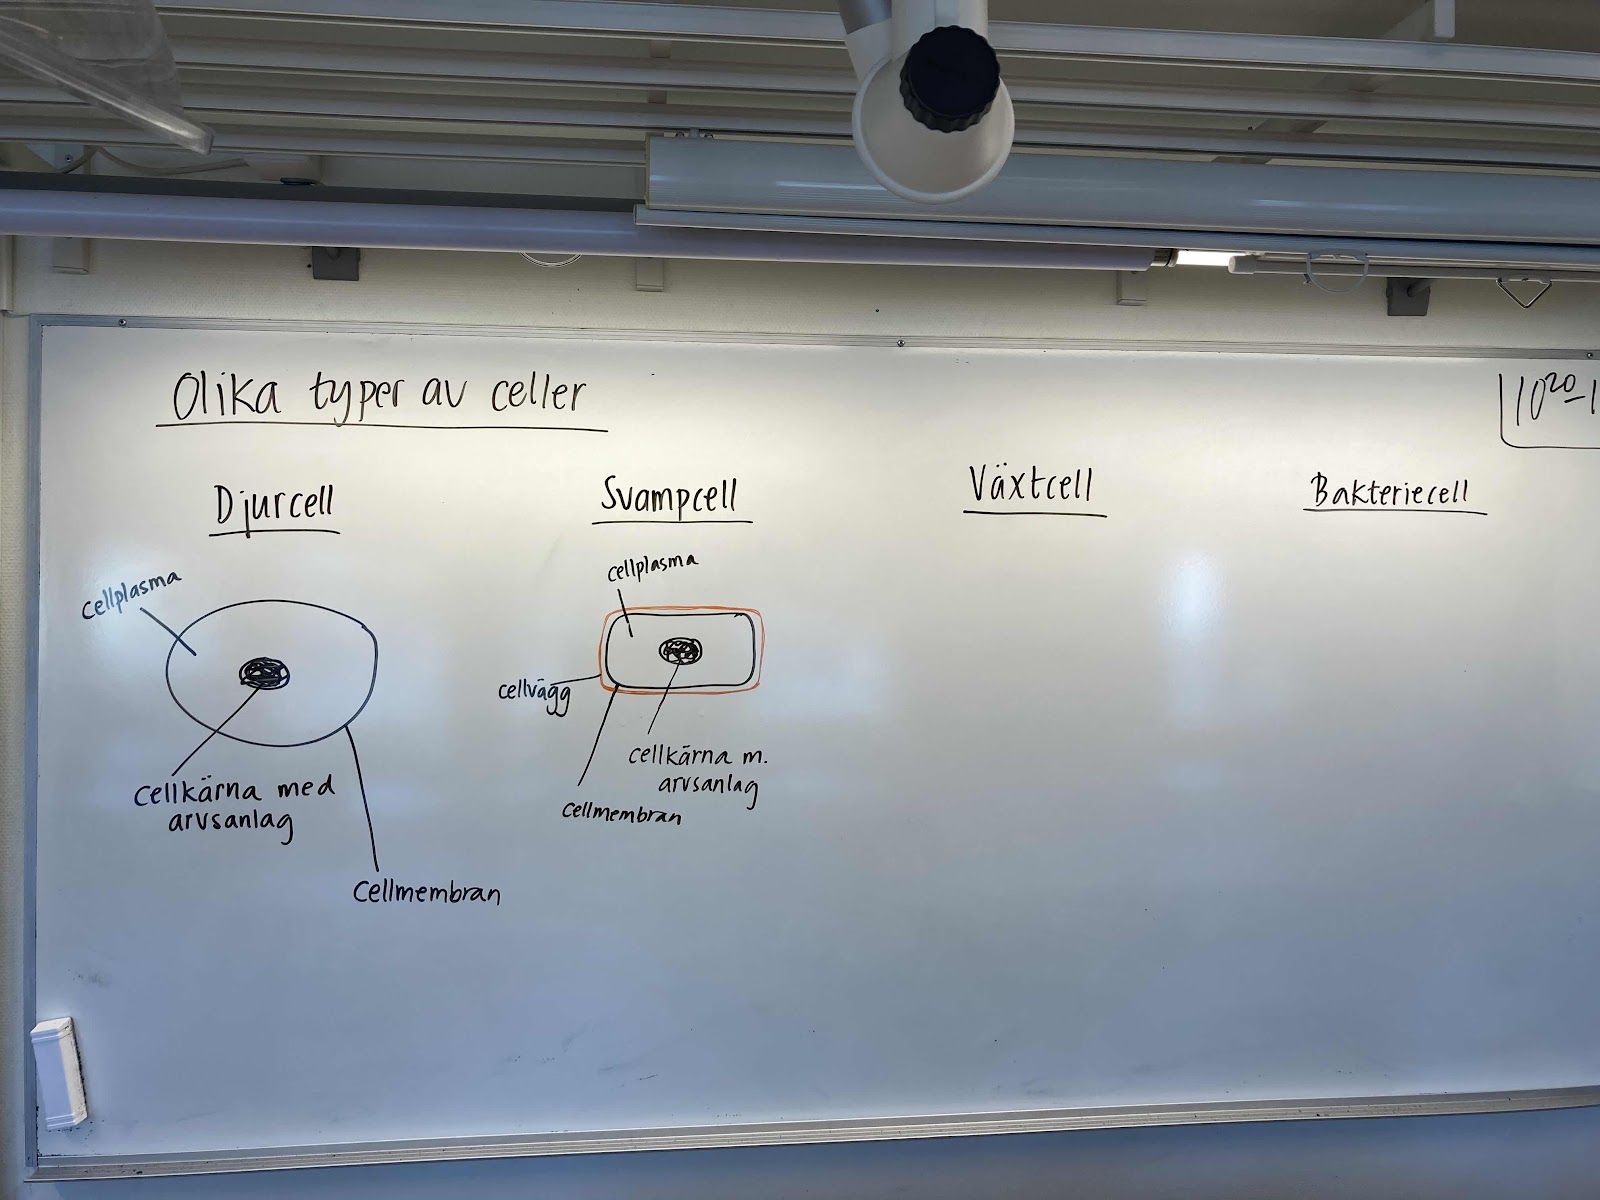 Olika typer av celler
10²⁰-1
Djurcell
Svampcell
Växtcell
Bakteriecell
cellplasma
cellkärna med
arvsanlag
cellmembran
cellplasma
cellvägg
cellkärna m.
arvsanlag
cellmembran